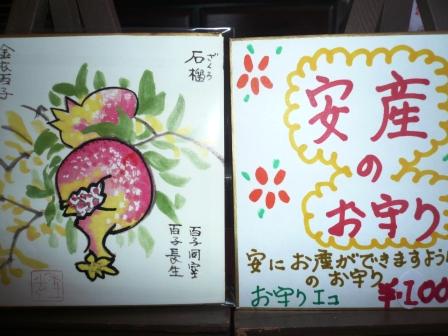 石榴
ざくろ
百子同室
百子長生
安産
の
お守り
安にお産ができますよう
のお守り
お守りエコ
¥100